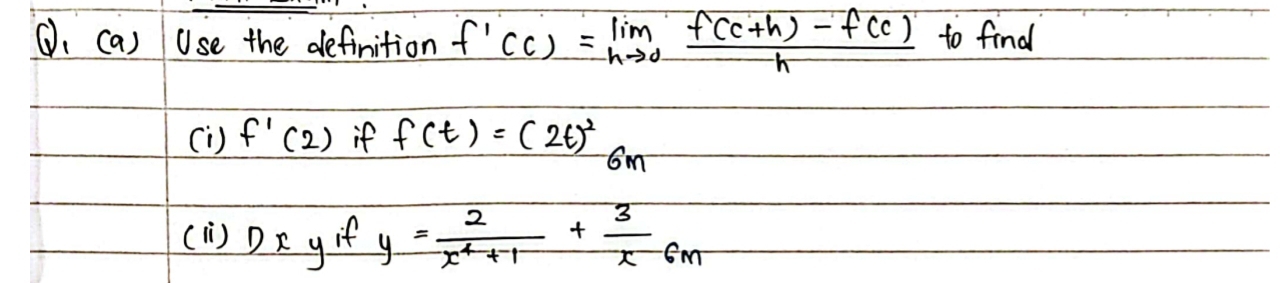 Q1 (a) Use the definition f'(c) = lim h→0 f(c+h) - f(c) / h to find
(i) f'(2) if f(t) = (2t)² 6m
(ii) Dx y if y = 2 / x⁴ + 1 + 3 / x 6m